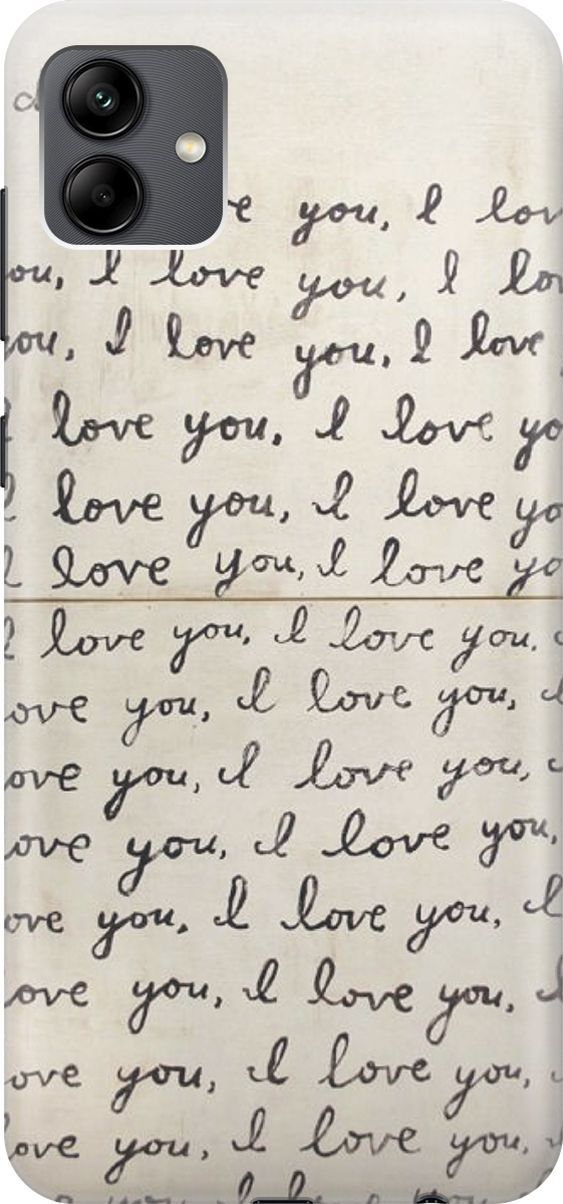 you, I
ou, I love you, I
you, I love you, I love
I love you, I love
I love you, I love
I love you, I love
I love you, I love you,
ove you, I love you,
ove you, I love you,
ove you, I love you,
ove you, I love you, I
ove you, I love you, I
ove you, I love you,
ove you, I love you,